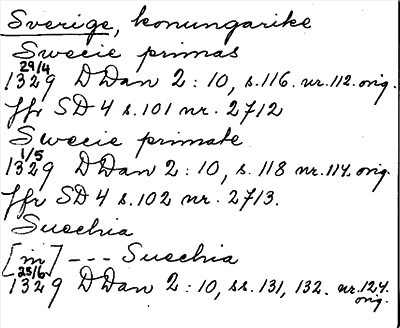 Sverige, konungarike
Swecie primas
29/4
1329 DDan 2:10, s.116. nr.112. orig.
jfr SD 4 s.101 nr. 2712
Swecie primate
1/5
1329 DDan 2:10, s.118 nr.114. orig.
jfr SD 4 s.102 nr. 2713.
Suechia
[in] --- Suechia
25/6
1329 DDan 2:10, ss. 131, 132. nr.124.
orig.